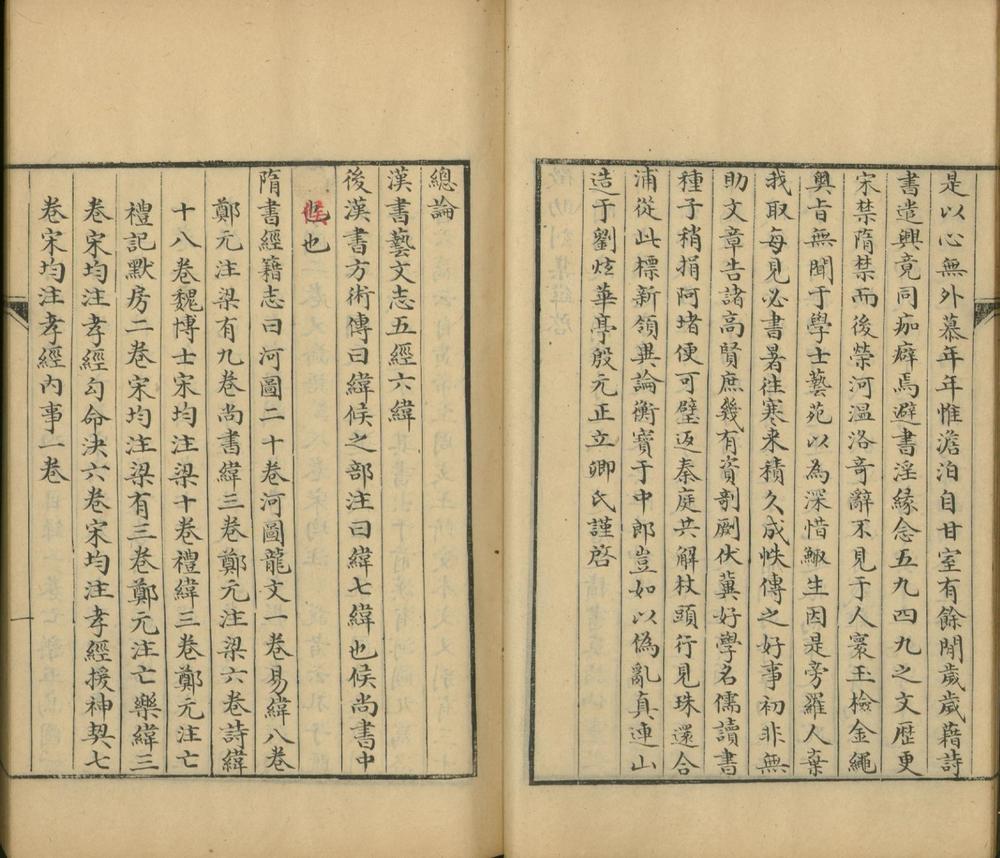 是以心無外慕年年惟澹泊自甘室有餘閒歲歲藉詩
書遣興竟同痂癖焉避書淫緣念五九四九之文歷更
宋禁隋禁而後榮河溫洛奇辭不見于人寰玉檢金繩
奧旨無聞于學士藝苑以為深惜鯫生因是旁羅人棄
我取每見必書暑往寒来積久成帙傳之好事初非無
助文章告諸高賢庶幾有資剞劂伏冀好學名儒讀書
種子稍捐阿堵便可璧返秦庭共解杖頭行見珠還合
浦從此標新領異論衡寶于中郎豈如以偽亂真連山
造于劉炫華亭殷元正立卿氏謹啓
總論
漢書藝文志五經六緯
後漢書方術傳曰緯候之部注曰緯七緯也侯尚書中
候也
隋書經籍志曰河圖二十卷河圖龍文一卷易緯八卷
鄭元注梁有九卷尚書緯三卷鄭元注梁六卷詩緯
十八卷魏博士宋均注梁十卷禮緯三卷鄭元注亡
禮記默房二卷宋均注梁有三卷鄭元注亡樂緯三
卷宋均注孝經勾命決六卷宋均注孝經援神契七
卷宋均注孝經內事一卷
一